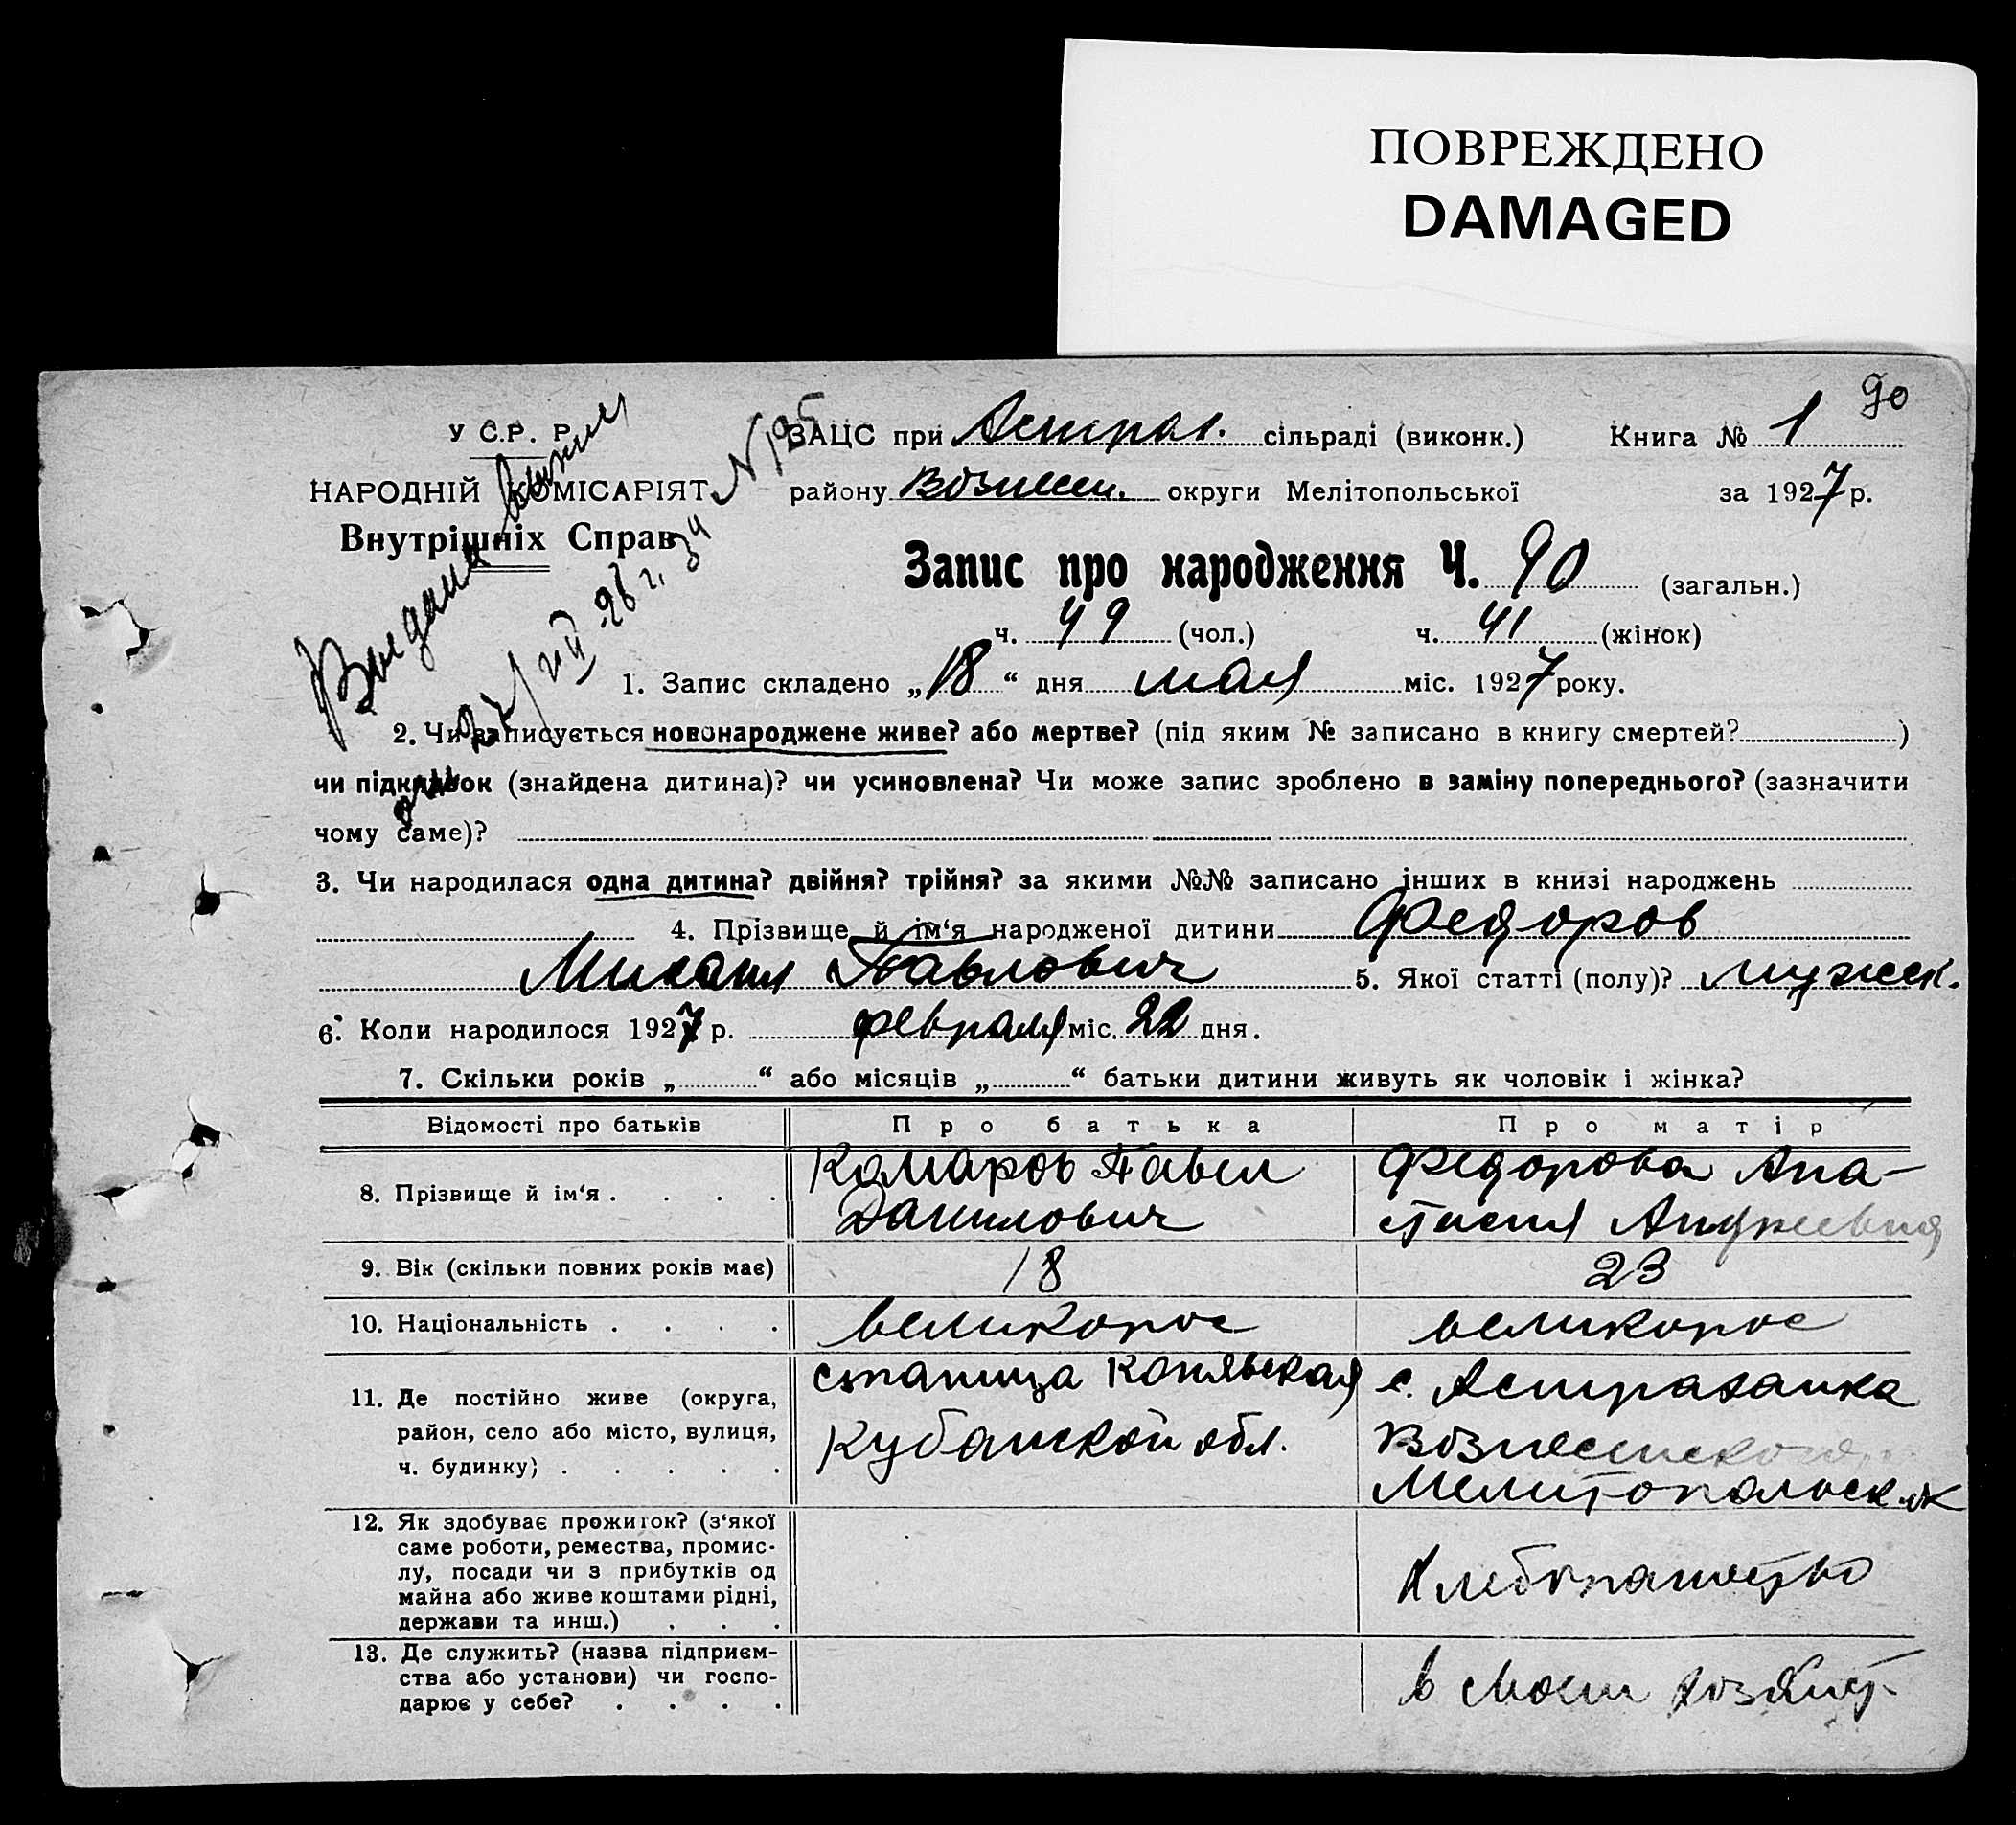 ПОВРЕЖДЕНО
DAMAGED
90
У С.Р. Р.
ЗАЦС при Астрах. сільраді (виконк.) Книга № 1
НАРОДНІЙ КОМІСАРІЯТ
району Вознесен. округи Мелітопольської за 1927 р.
Внутрішніх Справ
Запис про народження Ч. 90 (загальн.)
ч. 49 (чол.) ч. 41 (жінок)
1. Запис складено „18“ дня мая міс. 1927 року.
2. Чи записується новонароджене живе? або мертве? (під яким № записано в книгу смертей? )
чи підкидьок (знайдена дитина)? чи усиновлена? Чи може запис зроблено в заміну попереднього? (зазначити
чому саме)?
3. Чи народилася одна дитина? двійня? трійня? за якими №№ записано інших в книзі народжень
4. Прізвище й ім‘я народженої дитини Федоров
Михаил Павлович 5. Якої статті (полу)? мужск.
6. Коли народилося 1927 р. февраля міс. 22 дня.
7. Скільки років „ “ або місяців „ “ батьки дитини живуть як чоловік і жінка?
Відомості про батьків Про батька Про матір
8. Прізвище й ім‘я . . . . Комаров Павел Федорова Ана-
Данилович стасия Андреевна
9. Вік (скільки повних років має) 18 23
10. Національність . . . . великорос великорос
11. Де постійно живе (округа, станица с. Астраханка
район, село або місто, вулиця, Кубанской обл. Вознесенского
ч. будинку) . . . . . Мелитопольск. ок
12. Як здобуває прожиток? (з‘якої
саме роботи, ремества, промис-
лу, посади чи з прибутків од Хлебопашество
майна або живе коштами рідні,
держави та инш.) . . .
13. Де служить? (назва підприєм-
ства або установи) чи госпо- в своем хозяйст.
дарює у себе? . . . .